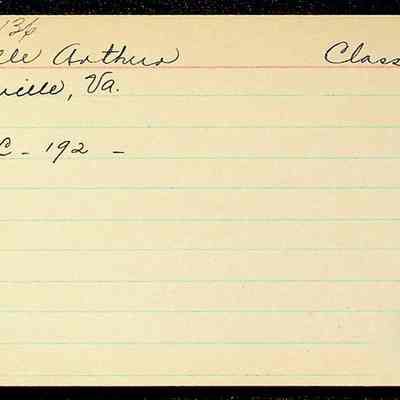 136
lle Arthur Class
ville, Va.
C - 192 -